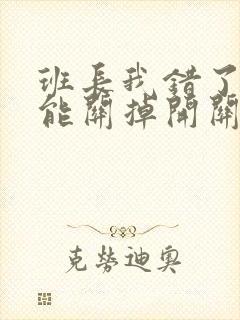 班长我错了
能關掉開關
克勞迪奧